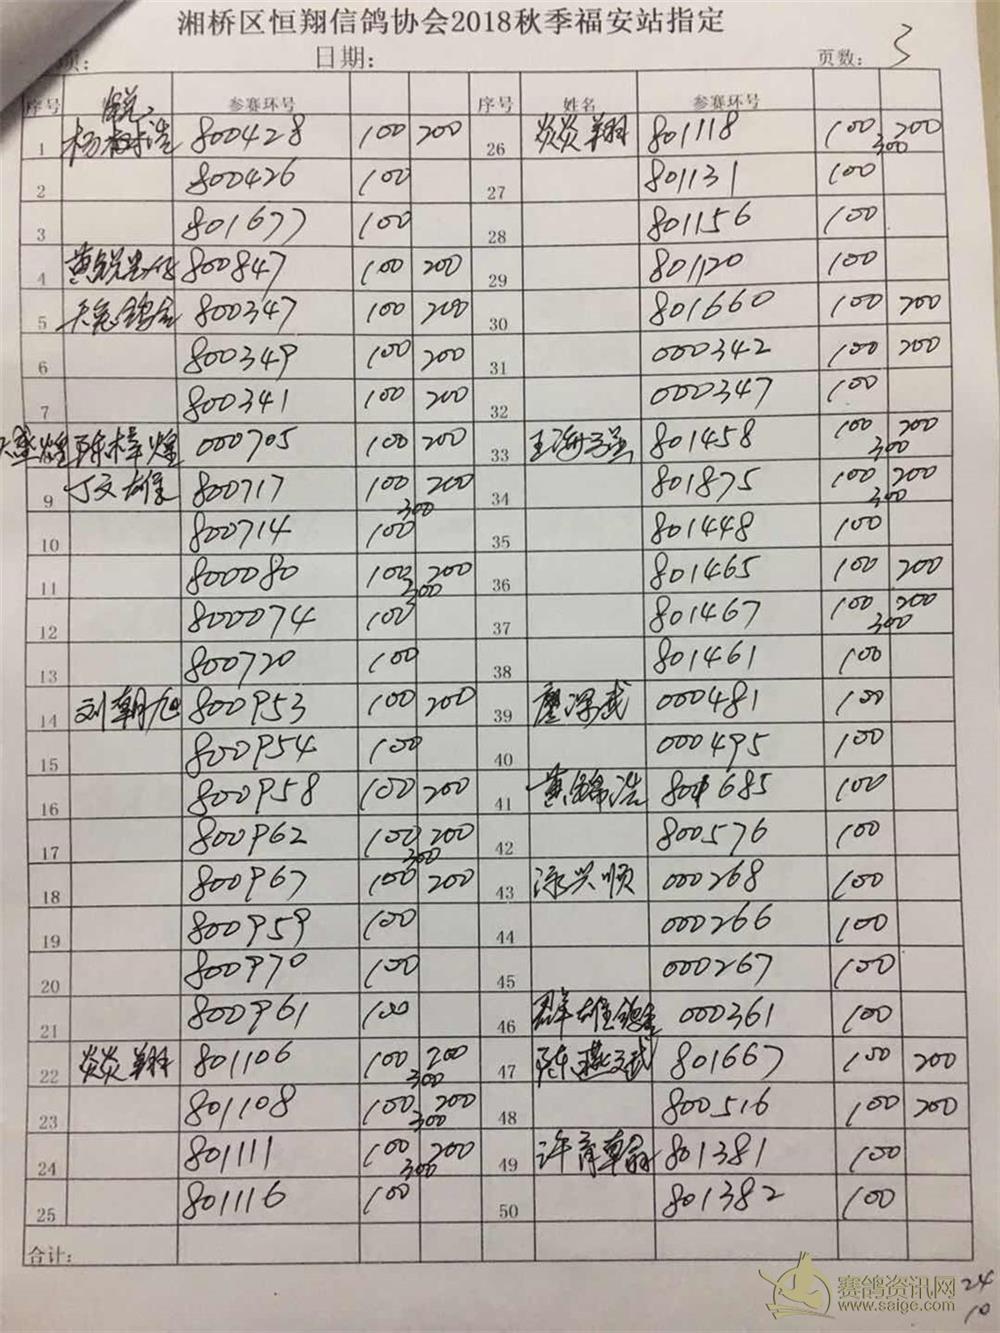 湘桥区恒翔信鸽协会2018秋季福安站指定
项: 日期: 页数: 3
序号 参赛环号 序号 姓名 参赛环号
1 800428 100 200 26 炎炎翔 801118 100 200 300
2 800426 100 27 801131 100
3 801677 100 28 801156 100
4 800847 100 200 29 801120 100
5 800347 100 200 30 801660 100 200
6 800349 100 200 31 000342 100 200
7 800341 100 200 32 000347 100
陈樟煌 000705 100 200 33 王海强 801458 100 200 300
9 丁文雄 800717 100 200 300 34 801875 100 200 300
10 800714 100 35 801448 100
11 800080 100 200 300 36 801465 100 200
12 800074 100 37 801467 100 200 300
13 800720 100 38 801461 100
14 刘朝旭 800953 100 200 39 000481 100
15 800954 100 40 000495 100
16 800958 100 200 41 黄锦浩 801685 100
17 800962 100 200 300 42 800576 100
18 800967 100 200 43 兴顺 000268 100
19 800959 100 44 000266 100
20 800970 100 45 000267 100
21 800961 100 46 群雄鸽舍 000361 100
22 炎炎翔 801106 100 200 300 47 陈燕武 801667 100 200
23 801108 100 200 300 48 800516 100 200
24 801111 100 200 300 49 801381 100
25 801116 100 50 801382 100
合计:
24
10
赛鸽资讯网
www.saige.com